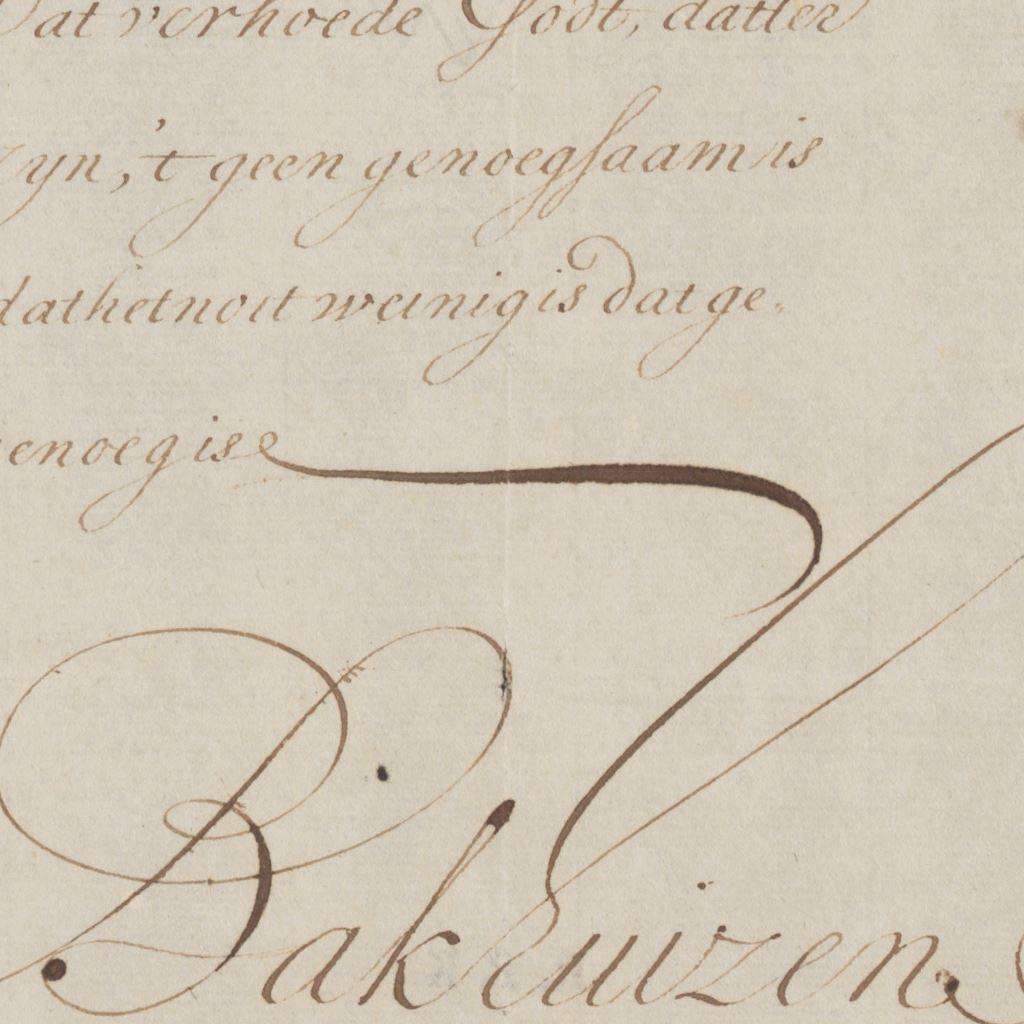 Dat verhoede Godt, datter
zyn, 't geen genoegsaam is
dat het noit weinig is dat ge-
genoeg is
Bakhuizen